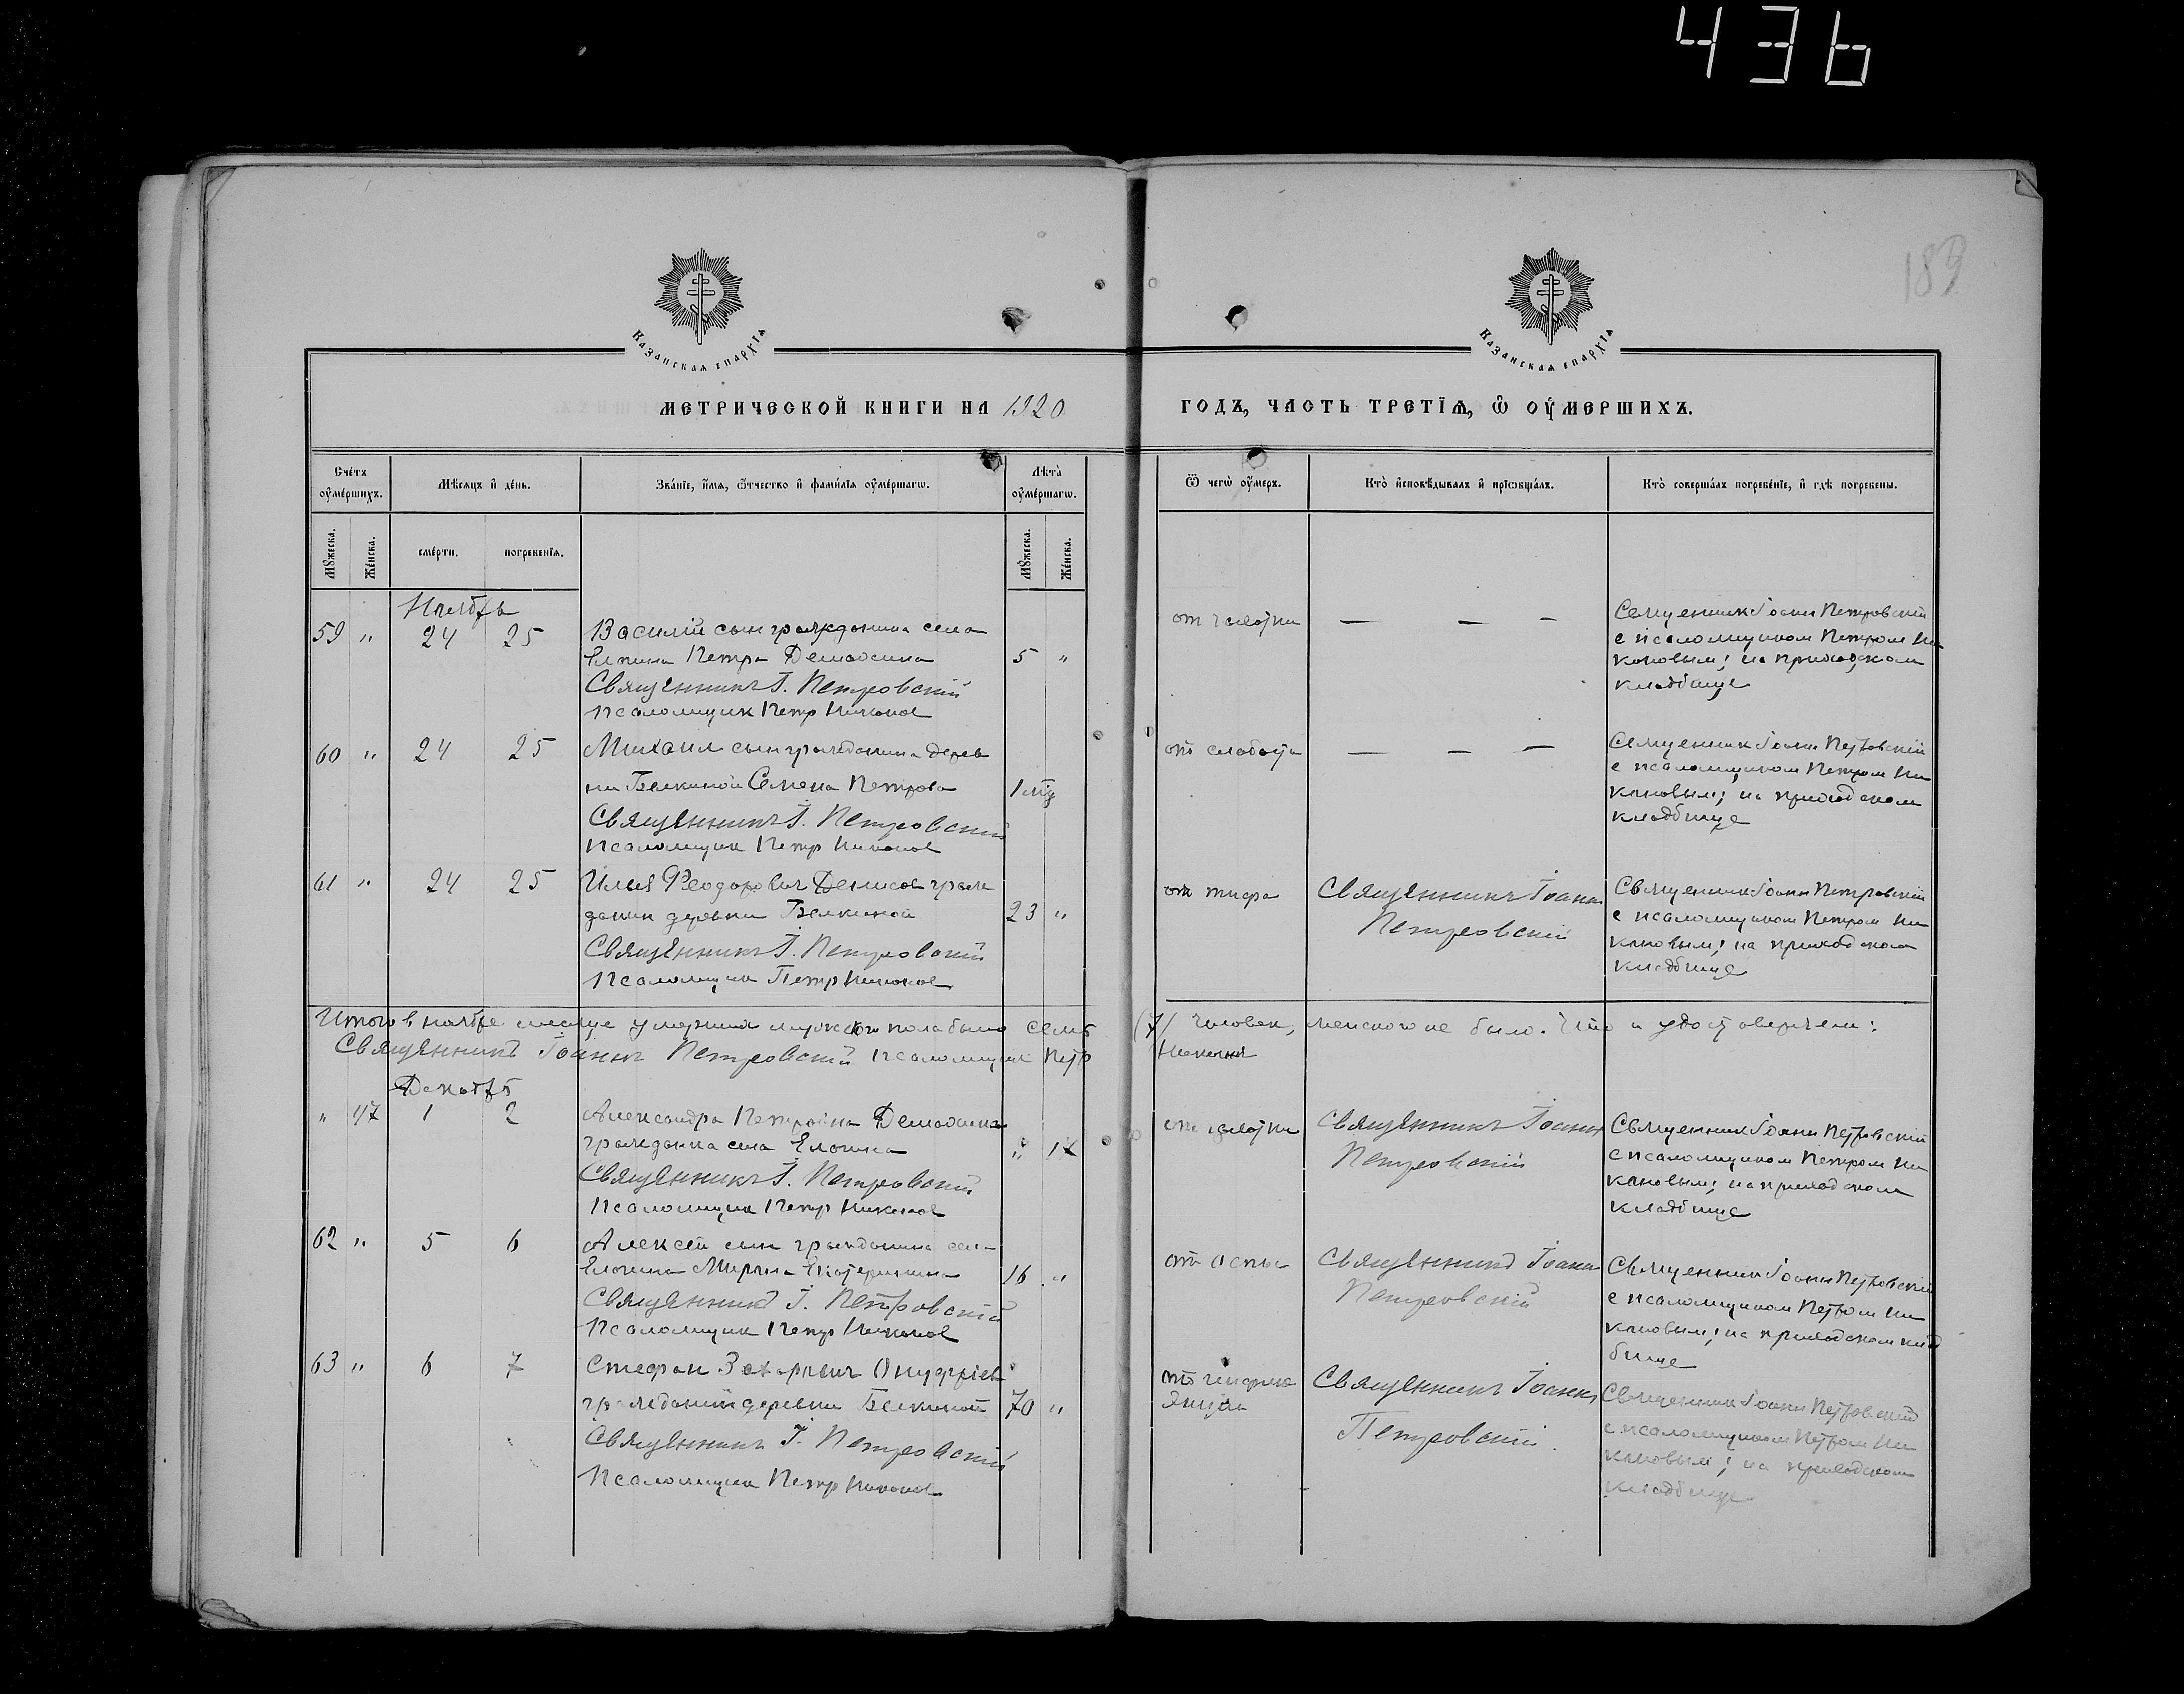 436
189
Казанская епархїѧ
Казанская епархїѧ
МЕТРИЧЕСКОЙ КНИГИ НА 1920
ГОДЪ, ЧАСТЬ ТРЕТІѦ, Ѡ ОУМЕРШИХЪ.
Счетъ оумершихъ.
Мѣсяцъ и день.
Званїе, имя, ѿтчество и фамилїя оумершагѡ.
Лѣта оумершагѡ.
Ѿ чегѡ оумеръ.
Кто исповѣдывалъ и прїѡбщалъ.
Кто совершалъ погребенїе, и гдѣ погребены.
Мꙋжеска.
Женска.
смерти.
погребенїя.
Мꙋжеска.
Женска.
Ноябрь
59 " 24 25 Василій сын гражданина села
Петра
5 "
Священникъ І. Петровскій
Псаломщик Петр Никонов
— — —
Священник Іоанн Петровскій
с псаломщиком Петром Ни
коновым; на приходском
кладбище
60 " 24 25 Михаил сын гражданина дерев
ни Белкиной Семена Петрова
Священникъ І. Петровскій
Псаломщик Петр Никонов
от слабости
— — —
Священник Іоанн Петровскій
с псаломщиком Петром Ни
коновым; на приходском
кладбище
61 " 24 25 Илья Феодорович Денисов граж
данин деревни Белкиной
23 "
Священникъ І. Петровскій
Псаломщик Петр Никонов
от тифа
Священникъ Іоаннъ
Петровскій
Священник Іоанн Петровскій
с псаломщиком Петром Ни
коновым; на приходском
кладбище
Итого в ноябре месяце умерших мужского пола было семь (7) человек, женского не было. Что и удостоверяем:
Священникъ Іоаннъ Петровскій псаломщик Петр Никонов
Декабрь
" 47 1 2 Александра Петровна
гражданка села
Священникъ І. Петровскій
Псаломщик Петр Никонов
Священникъ Іоаннъ
Петровскій
Священник Іоанн Петровскій
с псаломщиком Петром Ни
коновым; на приходском
кладбище
62 " 5 6 Алексей сын гражданина села
16 "
Священникъ І. Петровскій
Псаломщик Петр Никонов
от оспы
Священникъ Іоаннъ
Петровскій
Священник Іоанн Петровскій
с псаломщиком Петром Ни
коновым; на приходском клад
бище
63 " 6 7 Стефан Захарович Онуфріев
гражданин деревни Белкиной 70 "
Священникъ І. Петровскій
Псаломщик Петр Никонов
Священникъ Іоаннъ
Петровскій
Священник Іоанн Петровскій
с псаломщиком Петром Ни
коновым; на приходском
кладбище